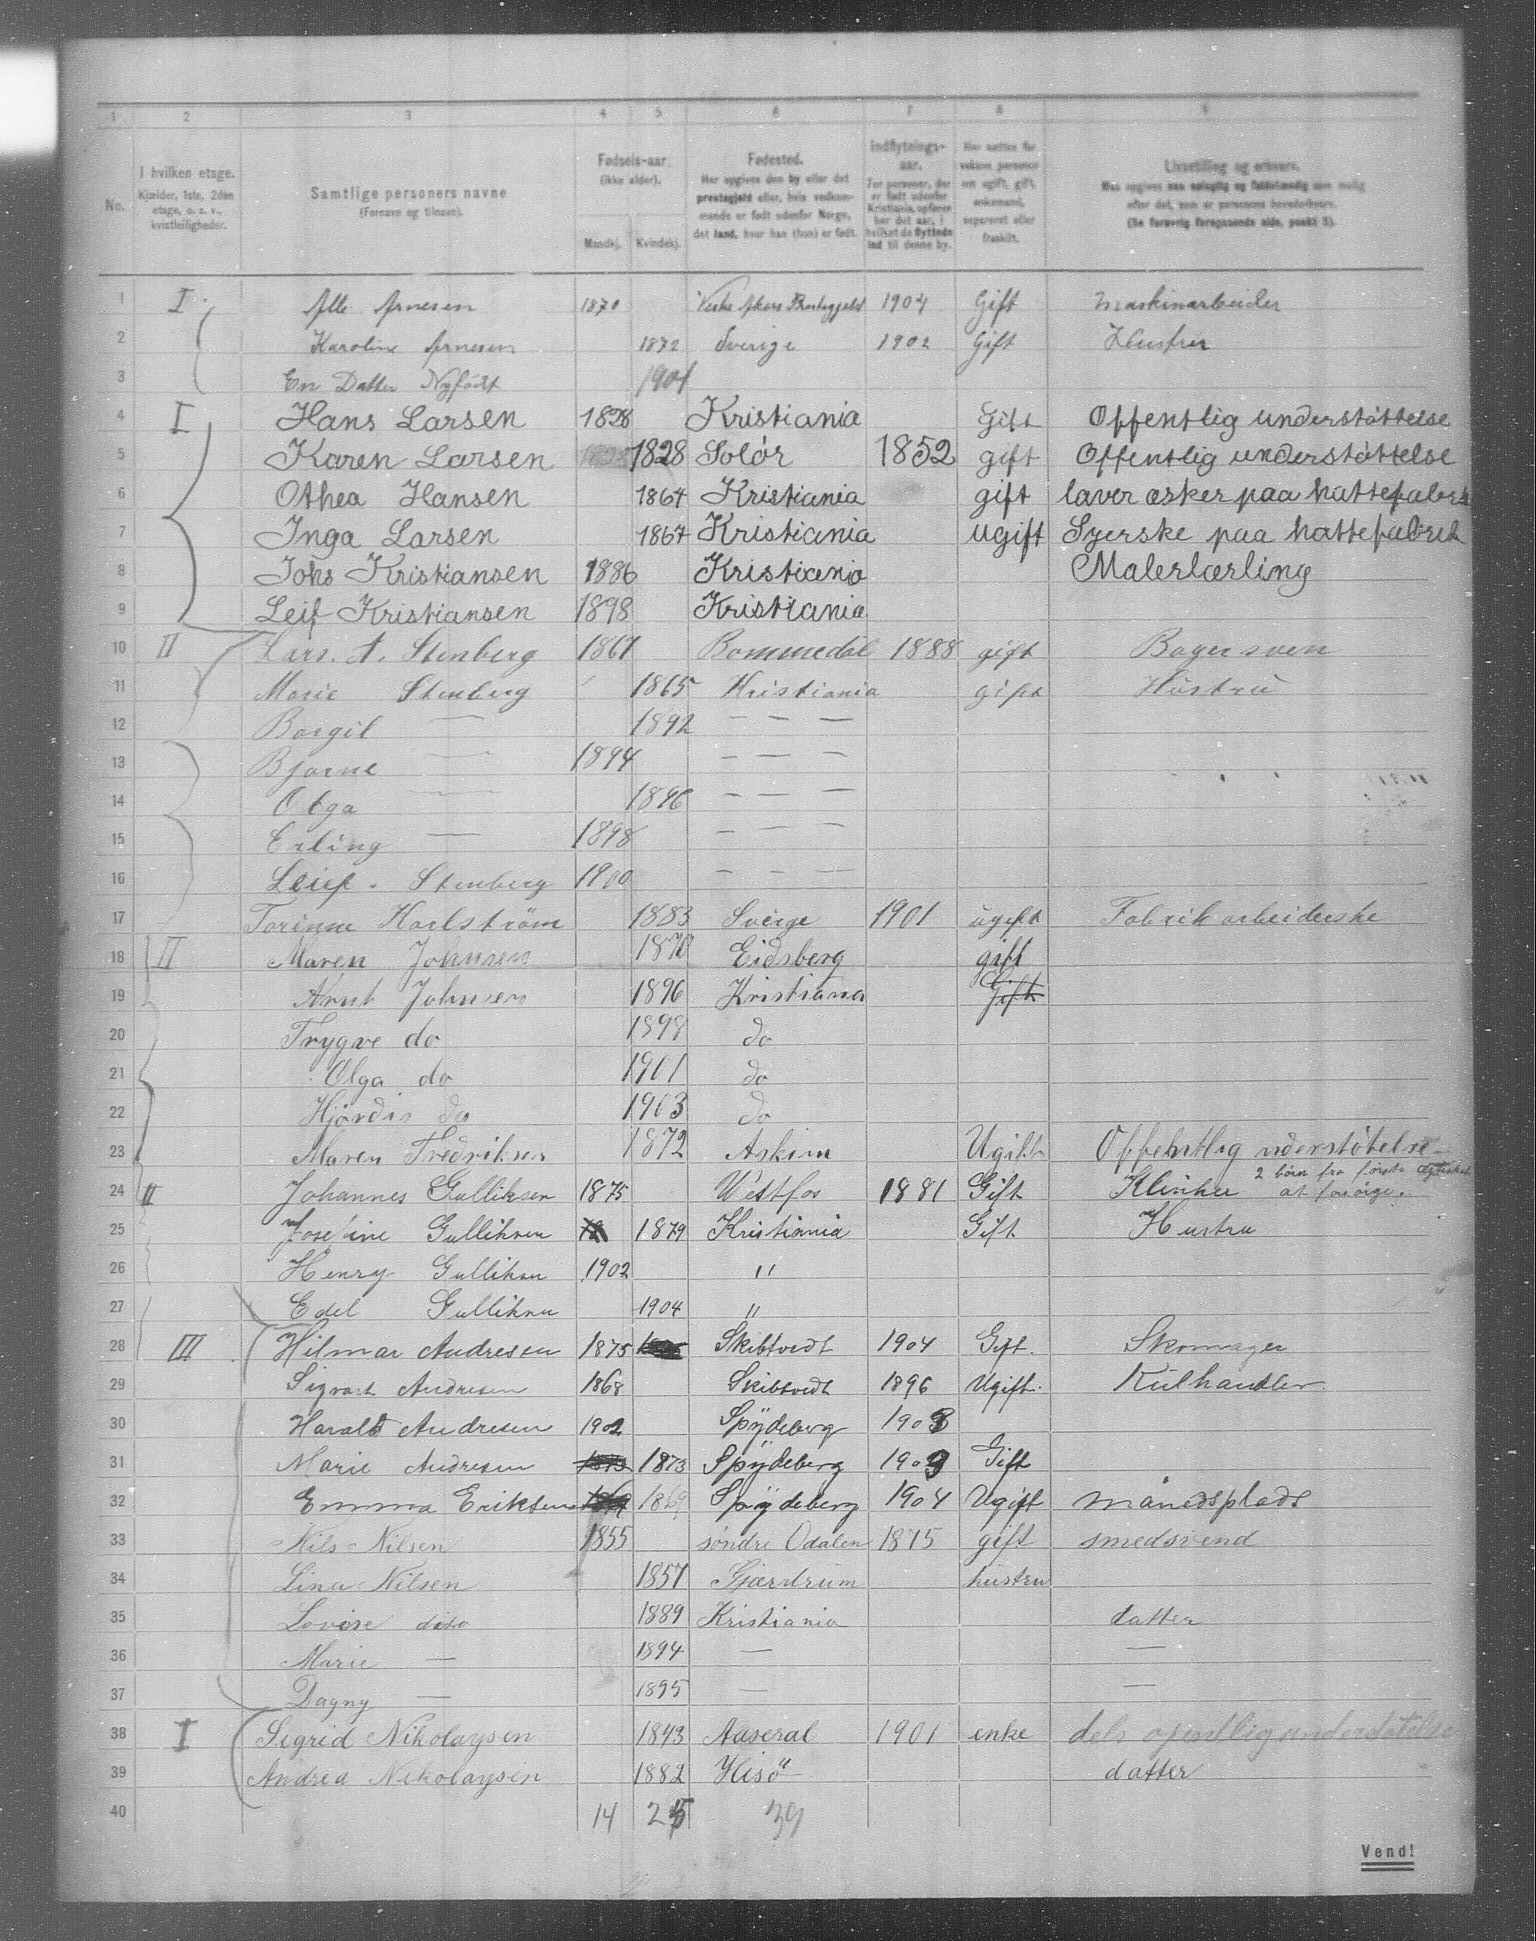 1 2 3 4 5 6 7 8 9
No. I hvilken etage. Kjælder, 1ste, 2den etage, o. s. v., kvistleiligheder. Samtlige personers navne (Fornavn og tilnavn). Fødsels-aar. (Ikke alder). Mandkj. Kvindekj. Fødested. Her opgives den by eller det prestegjeld eller, hvis vedkommende er født udenfor Norge, det land, hvor han (hun) er født. Indflytnings-aar. For personer, der er født udenfor Kristiania, opføres her det aar, i hvilket de flyttede ind til denne by. Her sættes for voksne personer om ugift, gift, enkemand, separeret eller fraskilt. Livsstilling og erhverv. Maa opgives saa nøiagtig og fuldstændig som mulig efter det, som er personens hovederhverv. (Se forøvrig foregaaende side, punkt 3).
1 I Arnesen 1870 Vestre Akers Prestegjeld 1904 Gift Maskinarbeider
2 Karoline Arnesen 1872 Sverige 1902 Gift Hustru
3 En Datter Nyfødt 1904
4 I Hans Larsen 1828 Kristiania Gift Offentlig understøttelse
5 Karen Larsen 1828 Solør 1852 gift Offentlig understøttelse
6 Othea Hansen 1864 Kristiania gift laver æsker paa hattefabrik
7 Inga Larsen 1867 Kristiania ugift Syerske paa hattefabrik
8 Johs Kristiansen 1886 Kristiania Malerlærling
9 Leif Kristiansen 1898 Kristiania
10 II Lars. A. Stenberg 1861 Bommedal 1888 gift Bagersven
11 Marie Stenberg 1865 Kristiania gift Hustru
12 Borgil — 1892 — — —
13 Bjarne — 1894 — — —
14 Olga — 1896 — — —
15 Erling — 1898 — — —
16 Leief. Stenberg 1900 — — — —
17 Torinne Karlström 1883 Sverge 1901 ugift Fabrikarbeiderske
18 II Maren Johnsen 1870 Eidsberg gift
19 Arnt Johnsen 1896 Kristiana Gift
20 Trygve do 1898 do
21 Olga do 1901 do
22 Hjördis do 1903 do
23 Maren Fredriksen 1872 Askim Ugift Offentlig understøtelse
24 II Johannes Gulliksen 1875 Vestfos 1881 Gift Klinker 2 børn fra første Ægteskab at forsörge.
25 Josefine Gulliksen 18 1879 Kristiania Gift Hustru
26 Henry Gulliksen 1902 "
27 Edel Gulliksen 1904 "
28 III Hilmar Andresen 1875 Skibtvedt 1904 Gift. Skomager
29 Sigvart Andresen 1868 Skibtvedt 1896 Ugift. Kulhandler
30 Harald Andresen 1902 Spÿdeberg 1903
31 Marie Andresen 1873 1873 Spÿdeberg 1903 Gift
32 Emma Eriksen 1869 1869 Spydeberg 1904 Ugift Månedsplads
33 Nils Nilsen 1855 søndre Odalen 1875 gift smedsvend
34 Lina Nilsen 1857 Gjærdrum hustru
35 Lovise dito 1889 Kristiania datter
36 Marie — 1894 — —
37 Dagny — 1895 — —
38 I Sigrid Nikolaysen 1843 Aaseral 1901 enke dels ofentlig understøtelse
39 Andrea Nikolaysen 1882 Hisö datter
40 14 25 39
Vend!